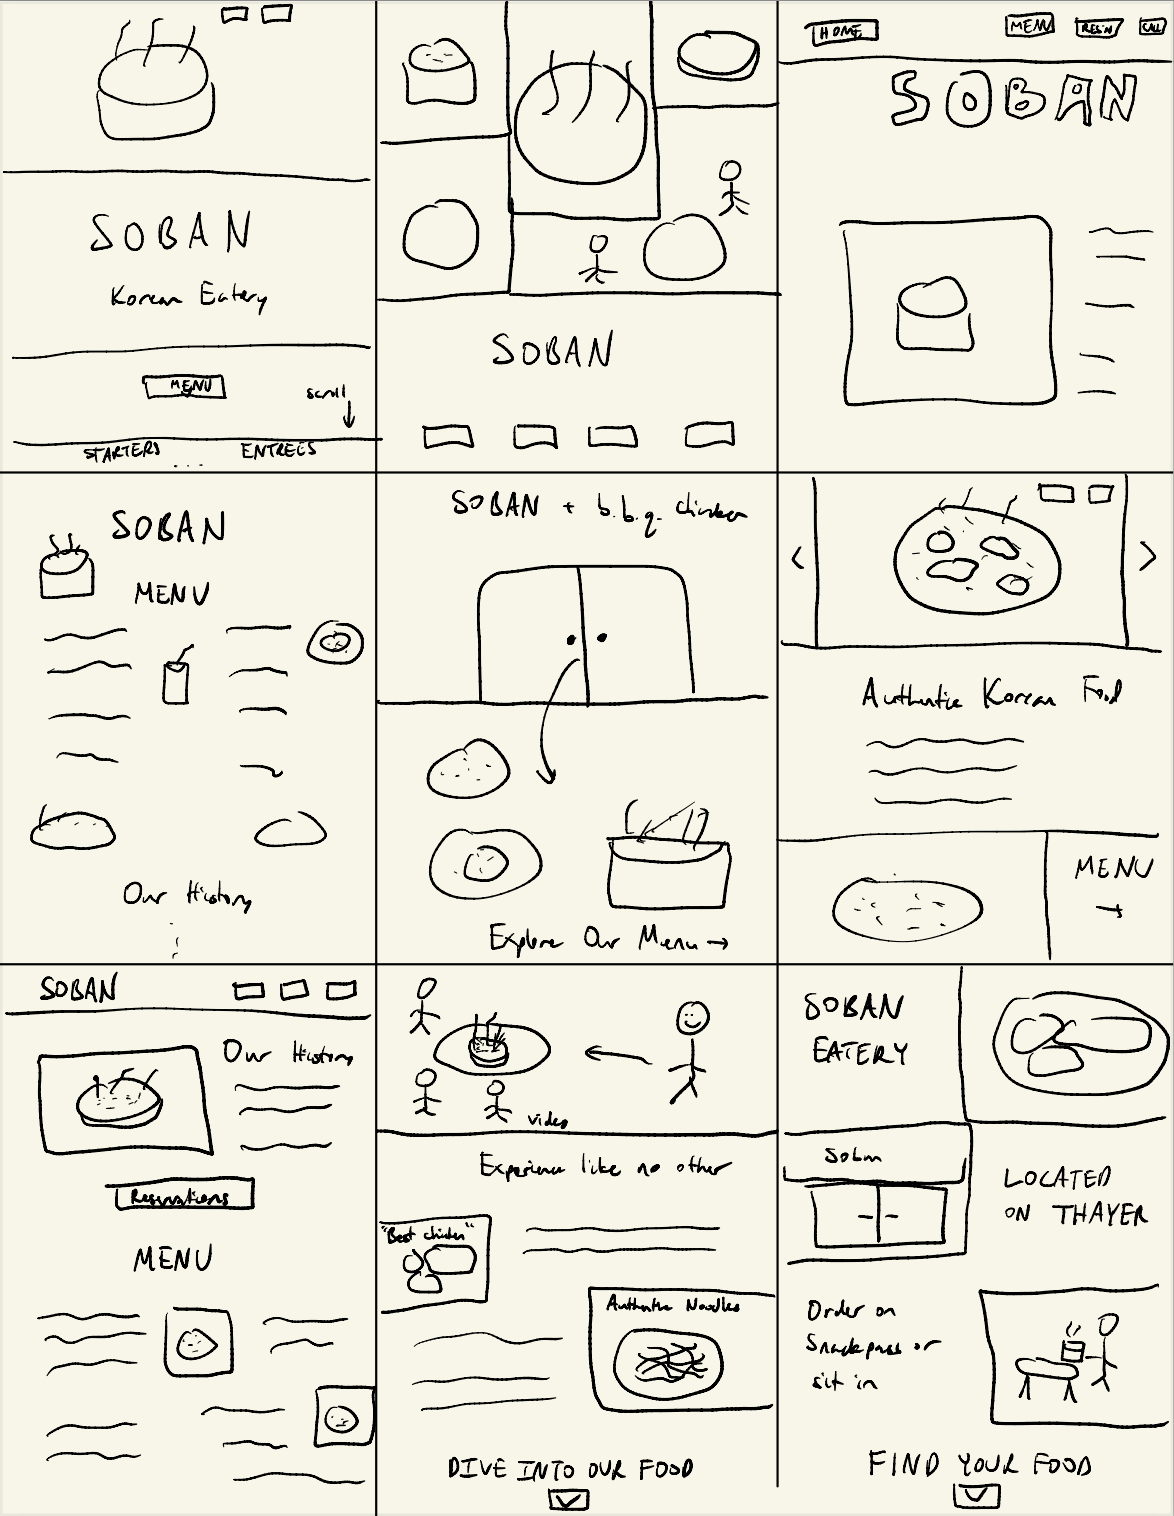 SOBAN
Korean Eatery
MENU
scroll
STARTERS
ENTREES
...
SOBAN
HOME
MENU
CALL
SOBAN
SOBAN
MENU
Our History
SOBAN + b.b.q. chicken
Explore Our Menu →
<
>
Authentic Korean Food
MENU
→
SOBAN
Our History
Reservations
MENU
video
Experience like no other
"Best chicken"
Authentic Noodles
DIVE INTO OUR FOOD
SOBAN
EATERY
Soban
LOCATED
ON THAYER
Order on
Snackpass or
sit in
FIND YOUR FOOD